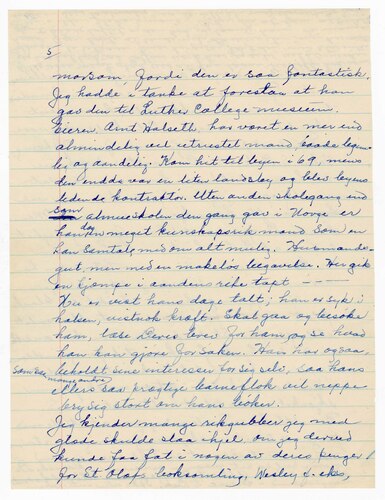 5
morsom, fordi den er saa fantastisk.
Jeg hadde i tanke at foreslaa at han
gav den til Luther College museum.
Eieren, Arnt Halseth, har været en mer end
almindelig vel utrustet mand, baade legem-
lig og aandelig. Kom hit til byen i 69, mens
den endda var en liten landsby og blev byens
ledende kontraktor. Uten anden skolegang end
som almueskolen den gang gav i Norge er
han dog en meget kundskapsrik mand som en
kan samtale med om alt mulig. Husmands-
gut, men med en makeløs begavelse. Her gik
en kjæmpe i aandens rike tapt — — — —
Nu er vist hans dage talt; han er syk i
halsen, vistnok kræft. Skal gaa og besøke
ham, læse Deres brev for ham og se hvad
han kan gjøre for saken. Han har ogsaa,
som saa mange andre,
beholdt sine interesser for sig selv, saa hans
ellers saa prægtige barneflok vil neppe
bry sig stort om hans bøker.
Jeg kjender mange rikgubber jeg med
glæde skulde slaa ihjel om jeg derved
kunde faa fat i nogen av deres penger!
for St Olafs boksamling, Wesley &